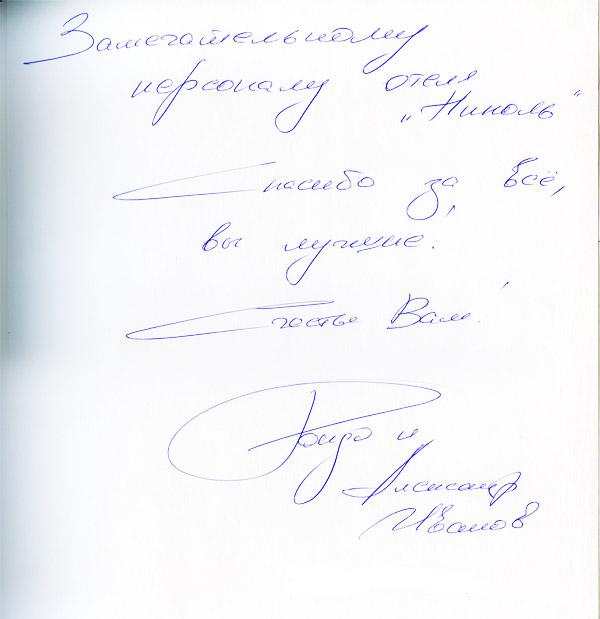 Замечательному
персоналу отеля
„Николь"
Спасибо за всё,
вы лучшие.
Счастье Вам!
Рондо и
Александр
Иванов